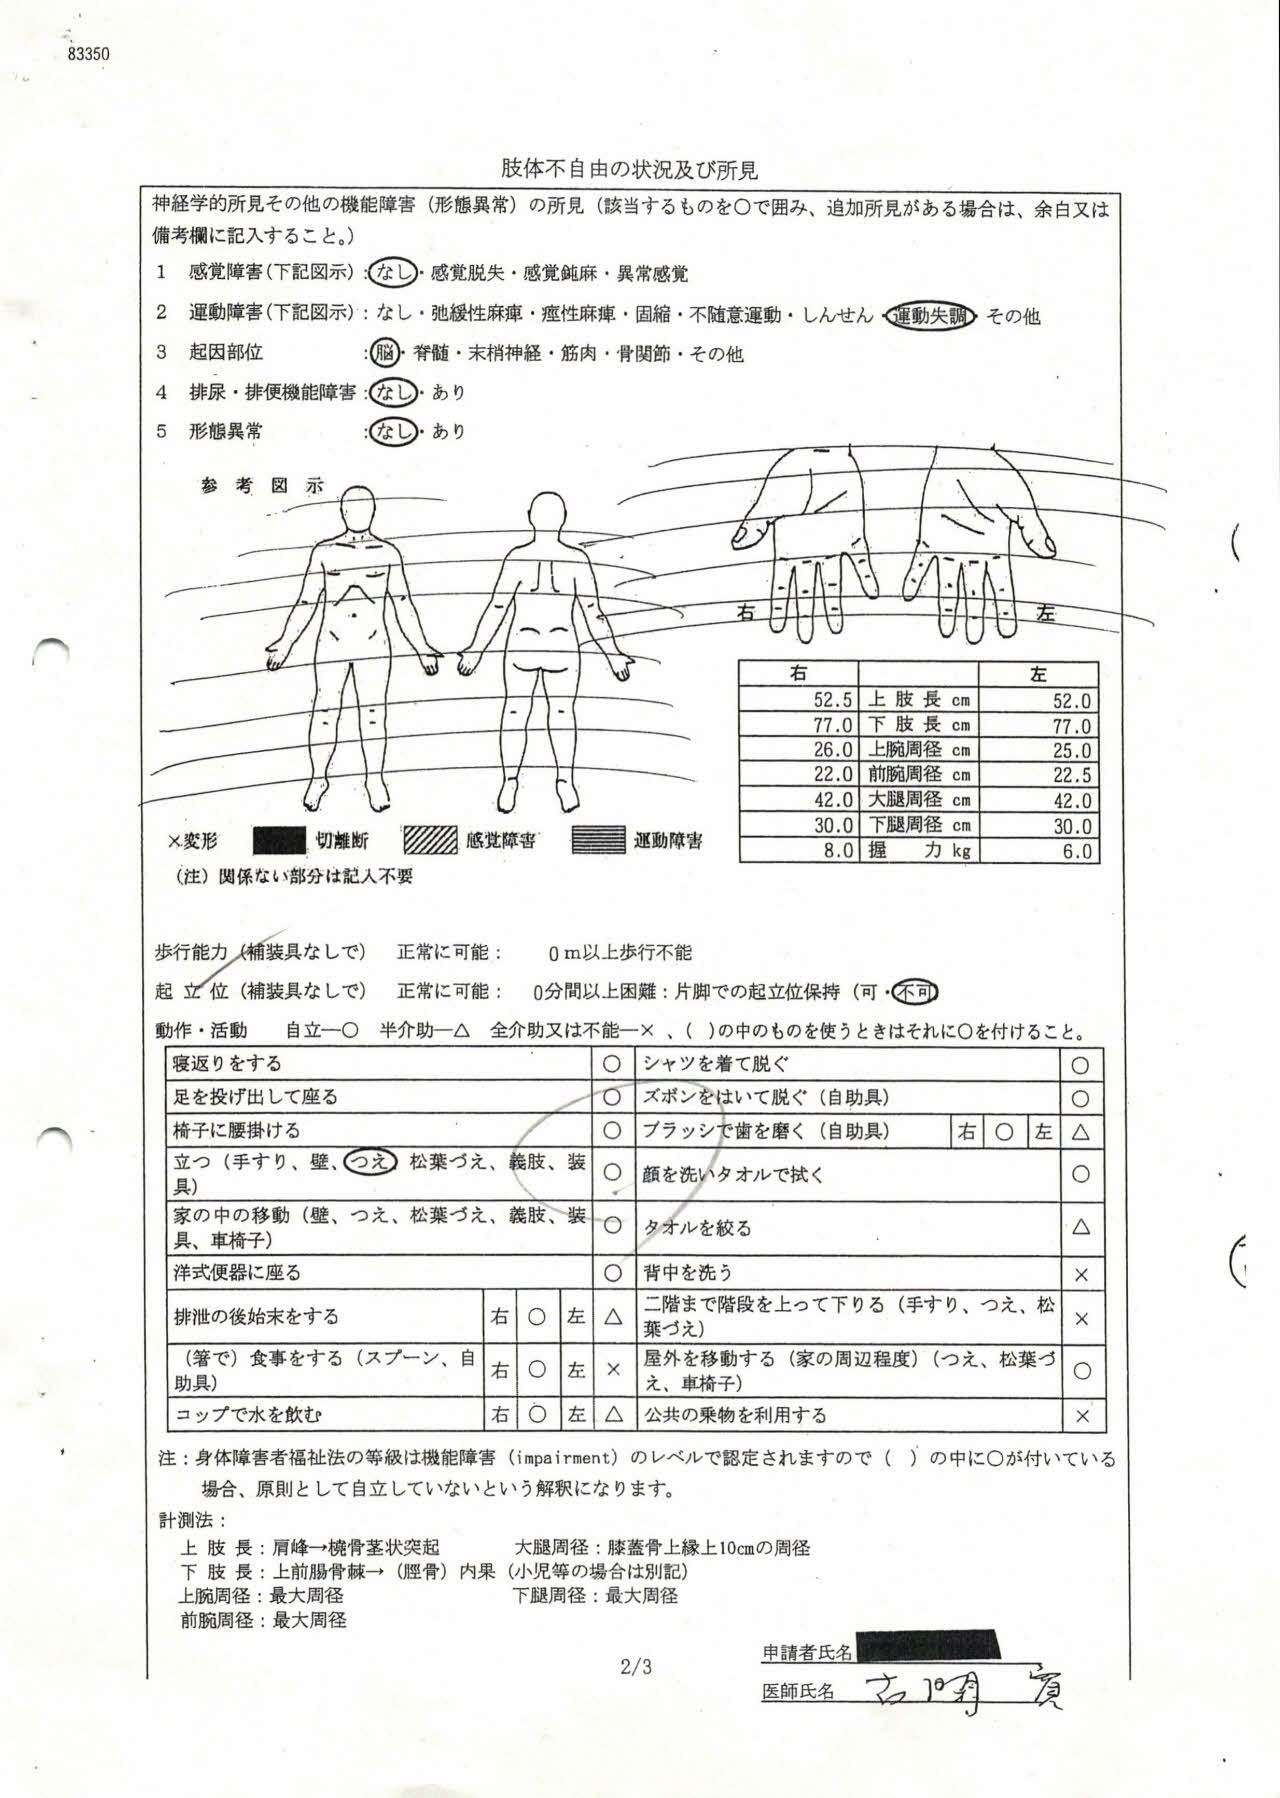 83350
肢体不自由の状況及び所見
神経学的所見その他の機能障害（形態異常）の所見（該当するものを○で囲み、追加所見がある場合は、余白又は
備考欄に記入すること。）
1 感覚障害(下記図示)：なし・感覚脱失・感覚鈍麻・異常感覚
2 運動障害(下記図示)：なし・弛緩性麻痺・痙性麻痺・固縮・不随意運動・しんせん・運動失調・その他
3 起因部位 ：脳・脊髄・末梢神経・筋肉・骨関節・その他
4 排尿・排便機能障害：なし・あり
5 形態異常 ：なし・あり
参考図示
右 左
右 左
52.5 上肢長 cm 52.0
77.0 下肢長 cm 77.0
26.0 上腕周径 cm 25.0
22.0 前腕周径 cm 22.5
42.0 大腿周径 cm 42.0
30.0 下腿周径 cm 30.0
8.0 握力 kg 6.0
×変形 切離断 感覚障害 運動障害
（注）関係ない部分は記入不要
歩行能力（補装具なしで） 正常に可能： 0m以上歩行不能
起立位（補装具なしで） 正常に可能： 0分間以上困難：片脚での起立位保持（可・不可）
動作・活動 自立―○ 半介助―△ 全介助又は不能―×、( )の中のものを使うときはそれに○を付けること。
寝返りをする ○ シャツを着て脱ぐ ○
足を投げ出して座る ○ ズボンをはいて脱ぐ（自助具） ○
椅子に腰掛ける ○ ブラッシで歯を磨く（自助具） 右 ○ 左 △
立つ（手すり、壁、つえ、松葉づえ、義肢、装
具） ○ 顔を洗いタオルで拭く ○
家の中の移動（壁、つえ、松葉づえ、義肢、装
具、車椅子） ○ タオルを絞る △
洋式便器に座る ○ 背中を洗う ×
排泄の後始末をする 右 ○ 左 △ 二階まで階段を上って下りる（手すり、つえ、松
葉づえ） ×
（箸で）食事をする（スプーン、自
助具） 右 ○ 左 × 屋外を移動する（家の周辺程度）（つえ、松葉づ
え、車椅子） ○
コップで水を飲む 右 ○ 左 △ 公共の乗物を利用する ×
注：身体障害者福祉法の等級は機能障害（impairment）のレベルで認定されますので（ ）の中に○が付いている
場合、原則として自立していないという解釈になります。
計測法：
上肢長：肩峰→橈骨茎状突起 大腿周径：膝蓋骨上縁上10cmの周径
下肢長：上前腸骨棘→（脛骨）内果（小児等の場合は別記）
上腕周径：最大周径 下腿周径：最大周径
前腕周径：最大周径
申請者氏名
2/3
医師氏名